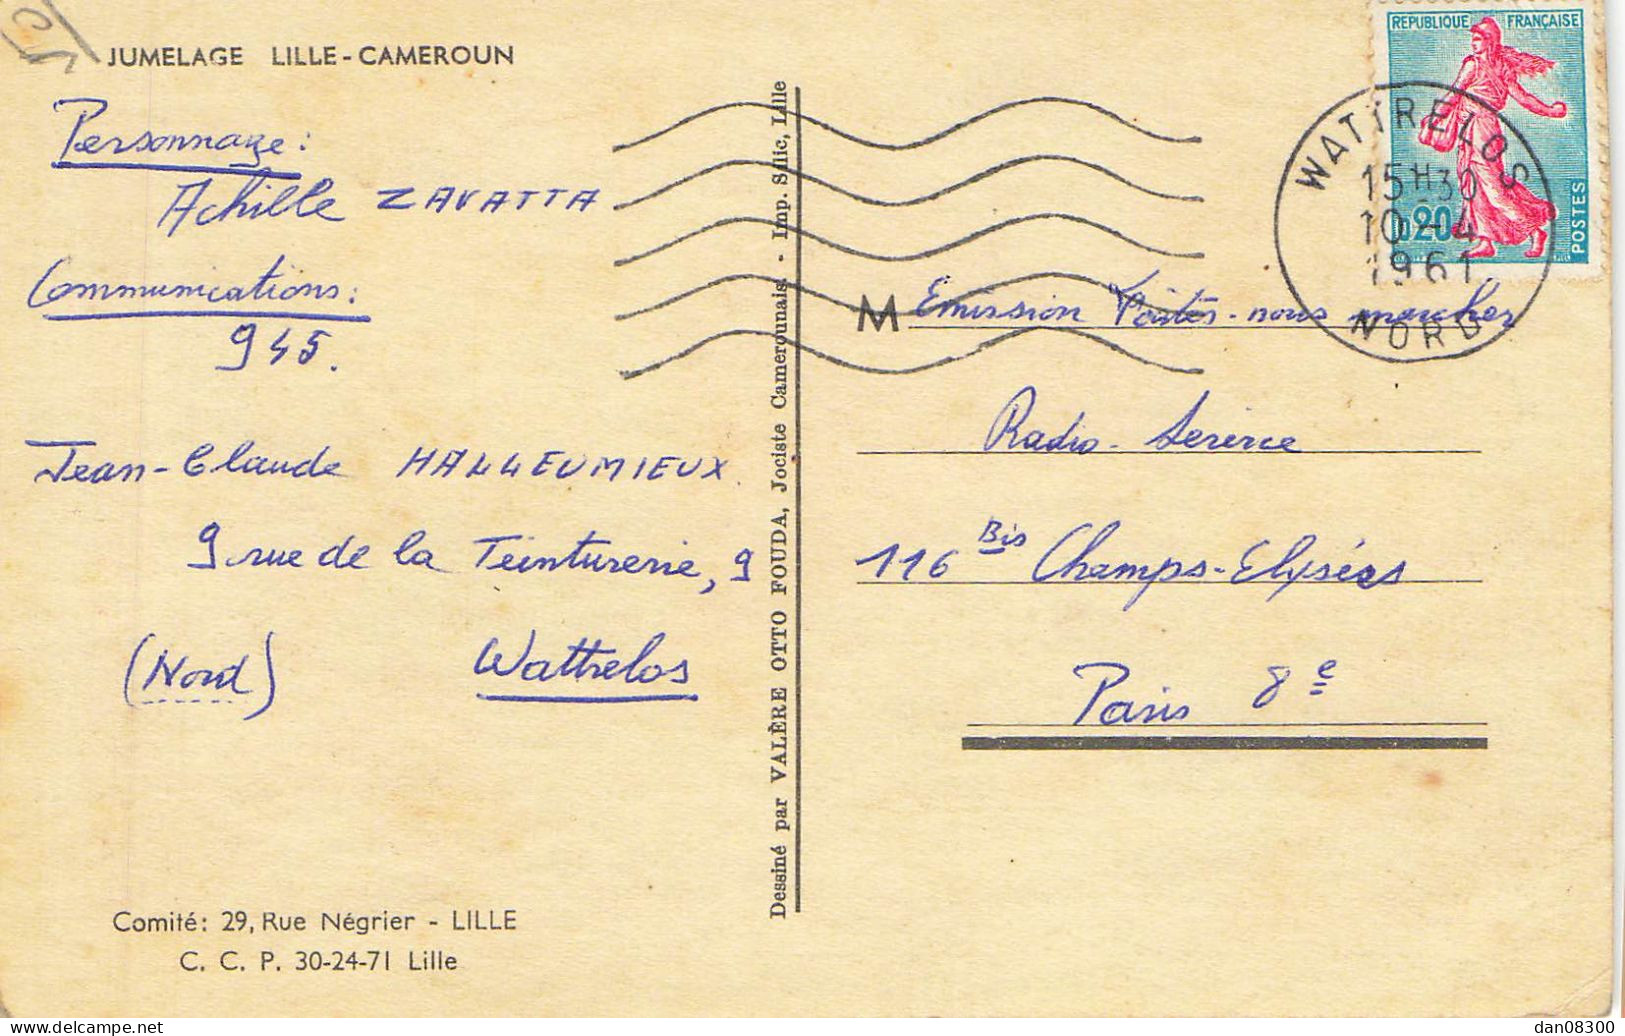 JUMELAGE LILLE-CAMEROUN
Personnage:
Achille ZAVATTA
Communications:
945.
Jean-Claude HALLEUMIEUX
9 rue de la Teinturerie, 9
(Nord) Wattrelos
Comité: 29, Rue Négrier - LILLE
C. C. P. 30-24-71 Lille
Dessiné par VALÈRE OTTO FOUDA, Jociste Camerounais - Imp. Silic, Lille
REPUBLIQUE FRANÇAISE
0.20
POSTES
WATTRELOS
15 H 30
10-4
1961
NORD
M Emission Faites-nous marcher
Radio-Service
116 Bis Champs-Elysées
Paris 8e
delcampe.net
dan08300